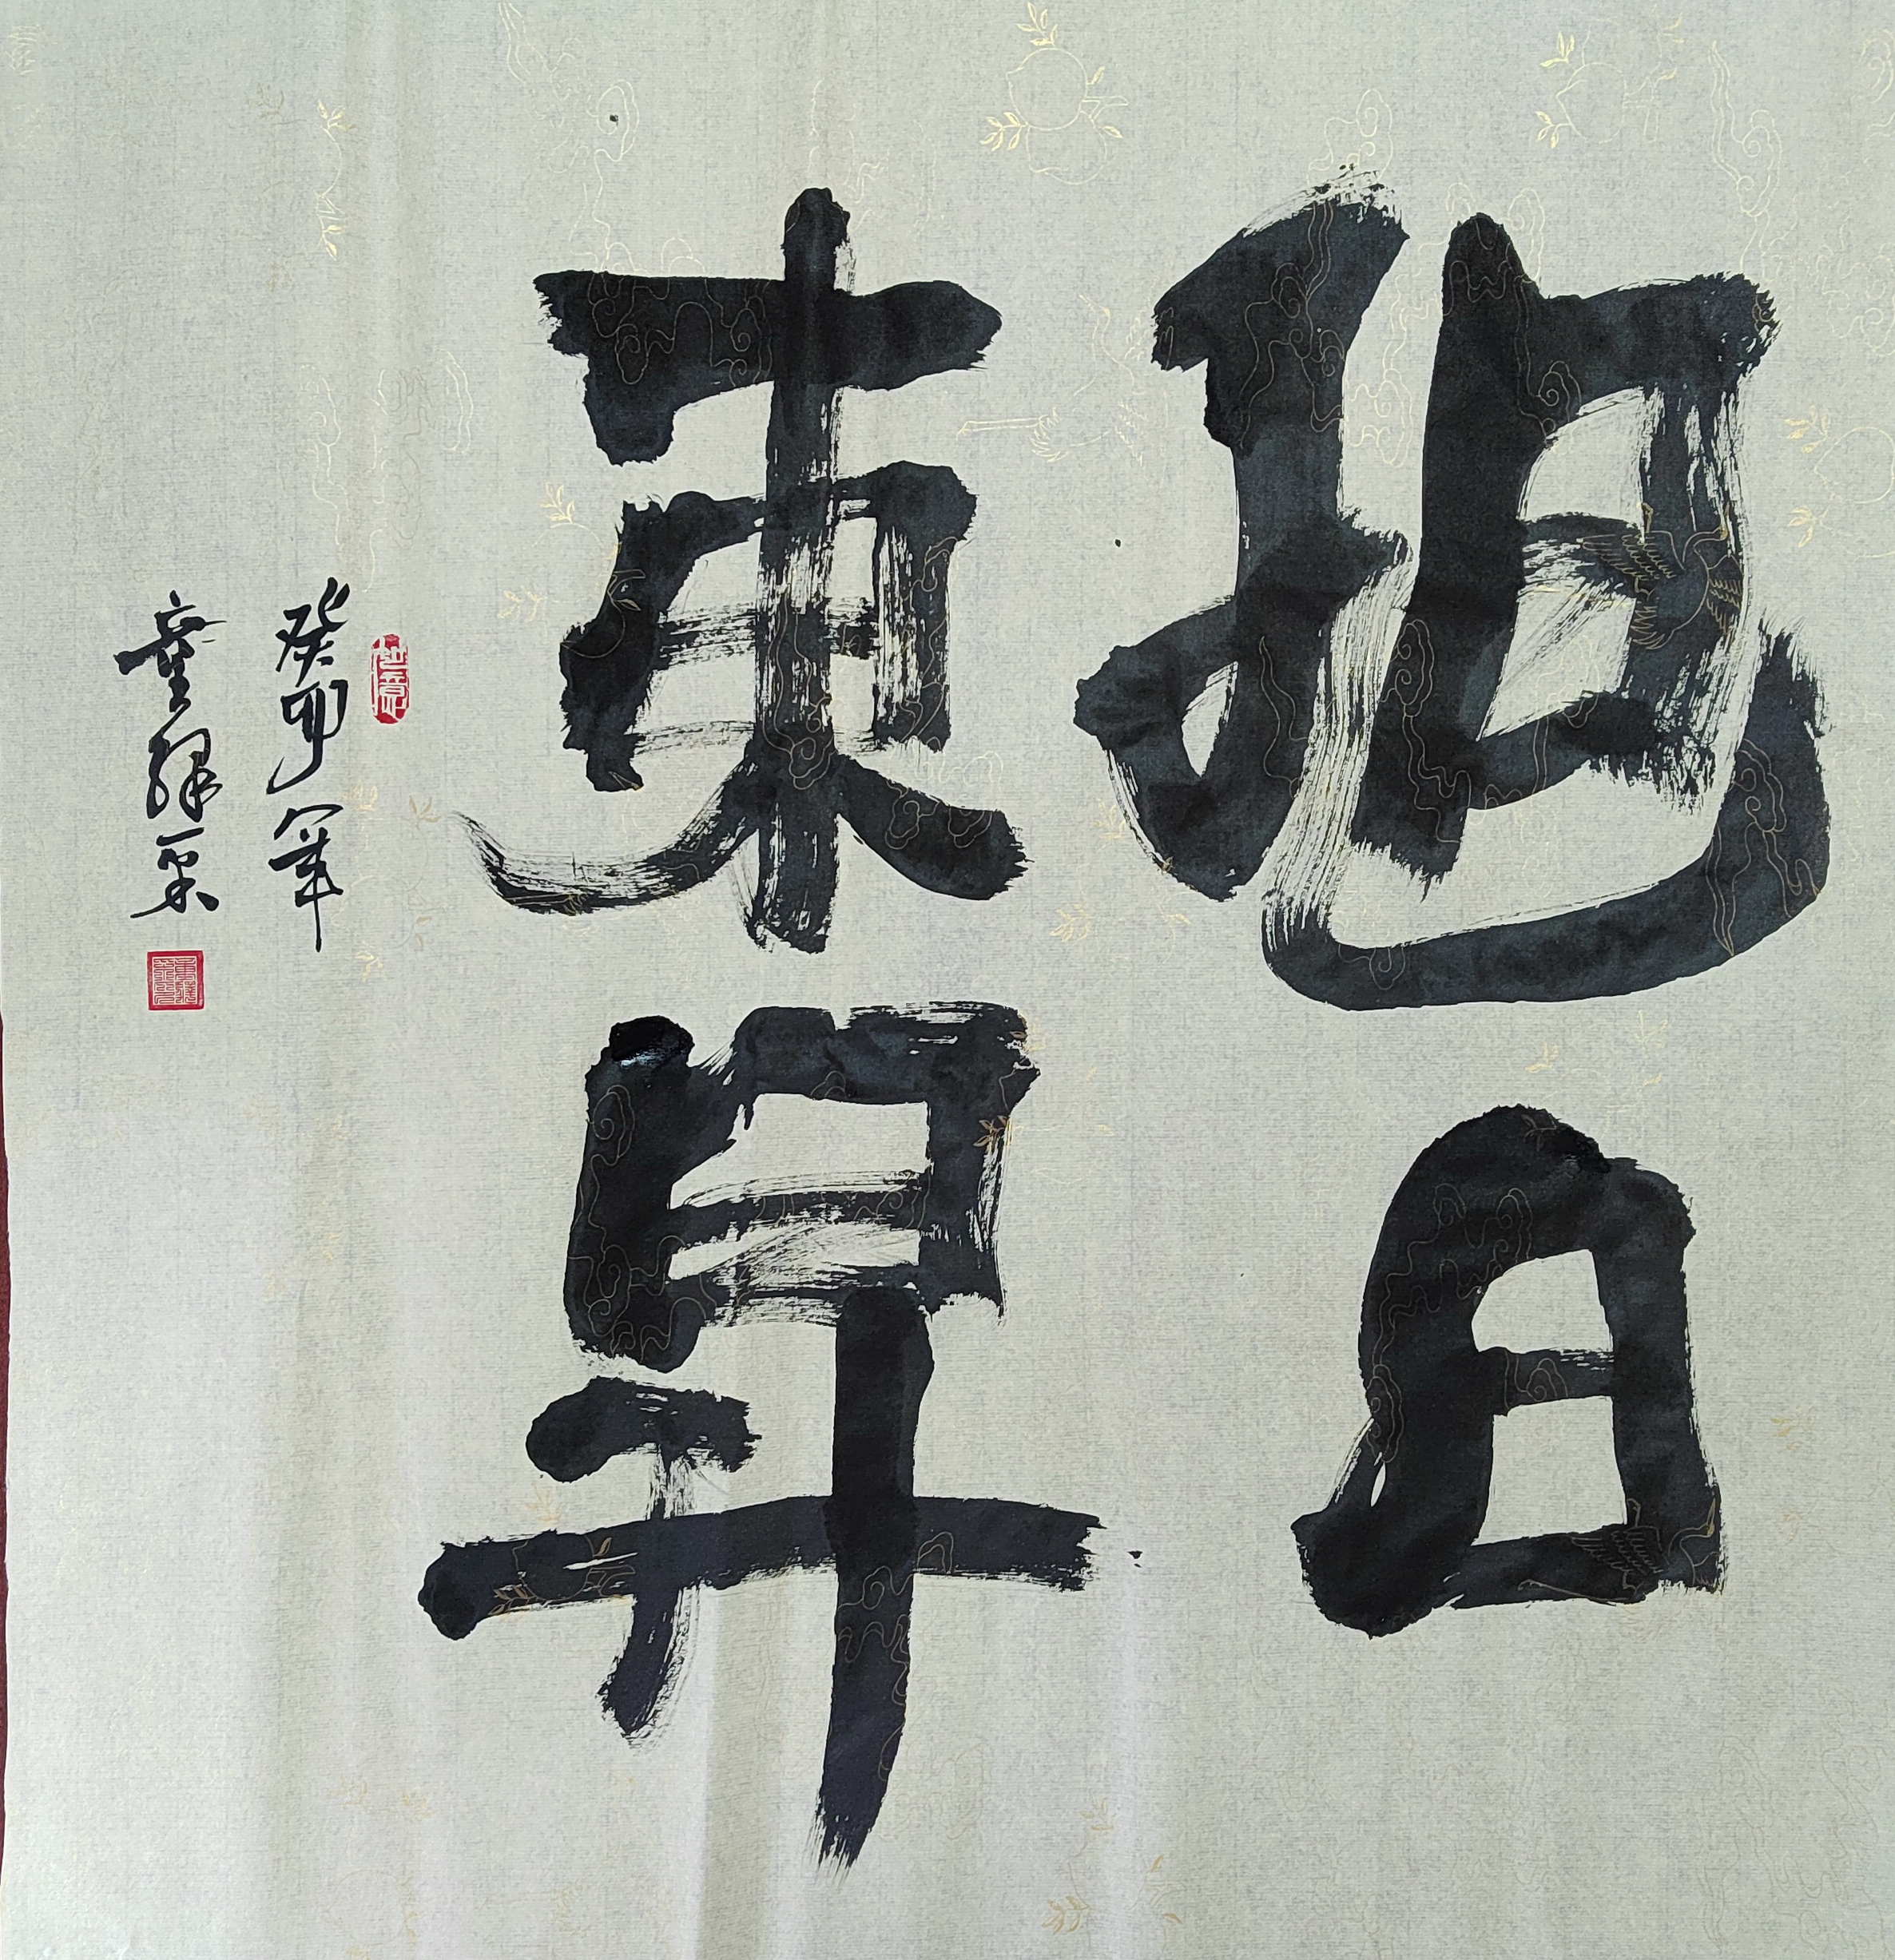 旭日
東昇
癸卯年